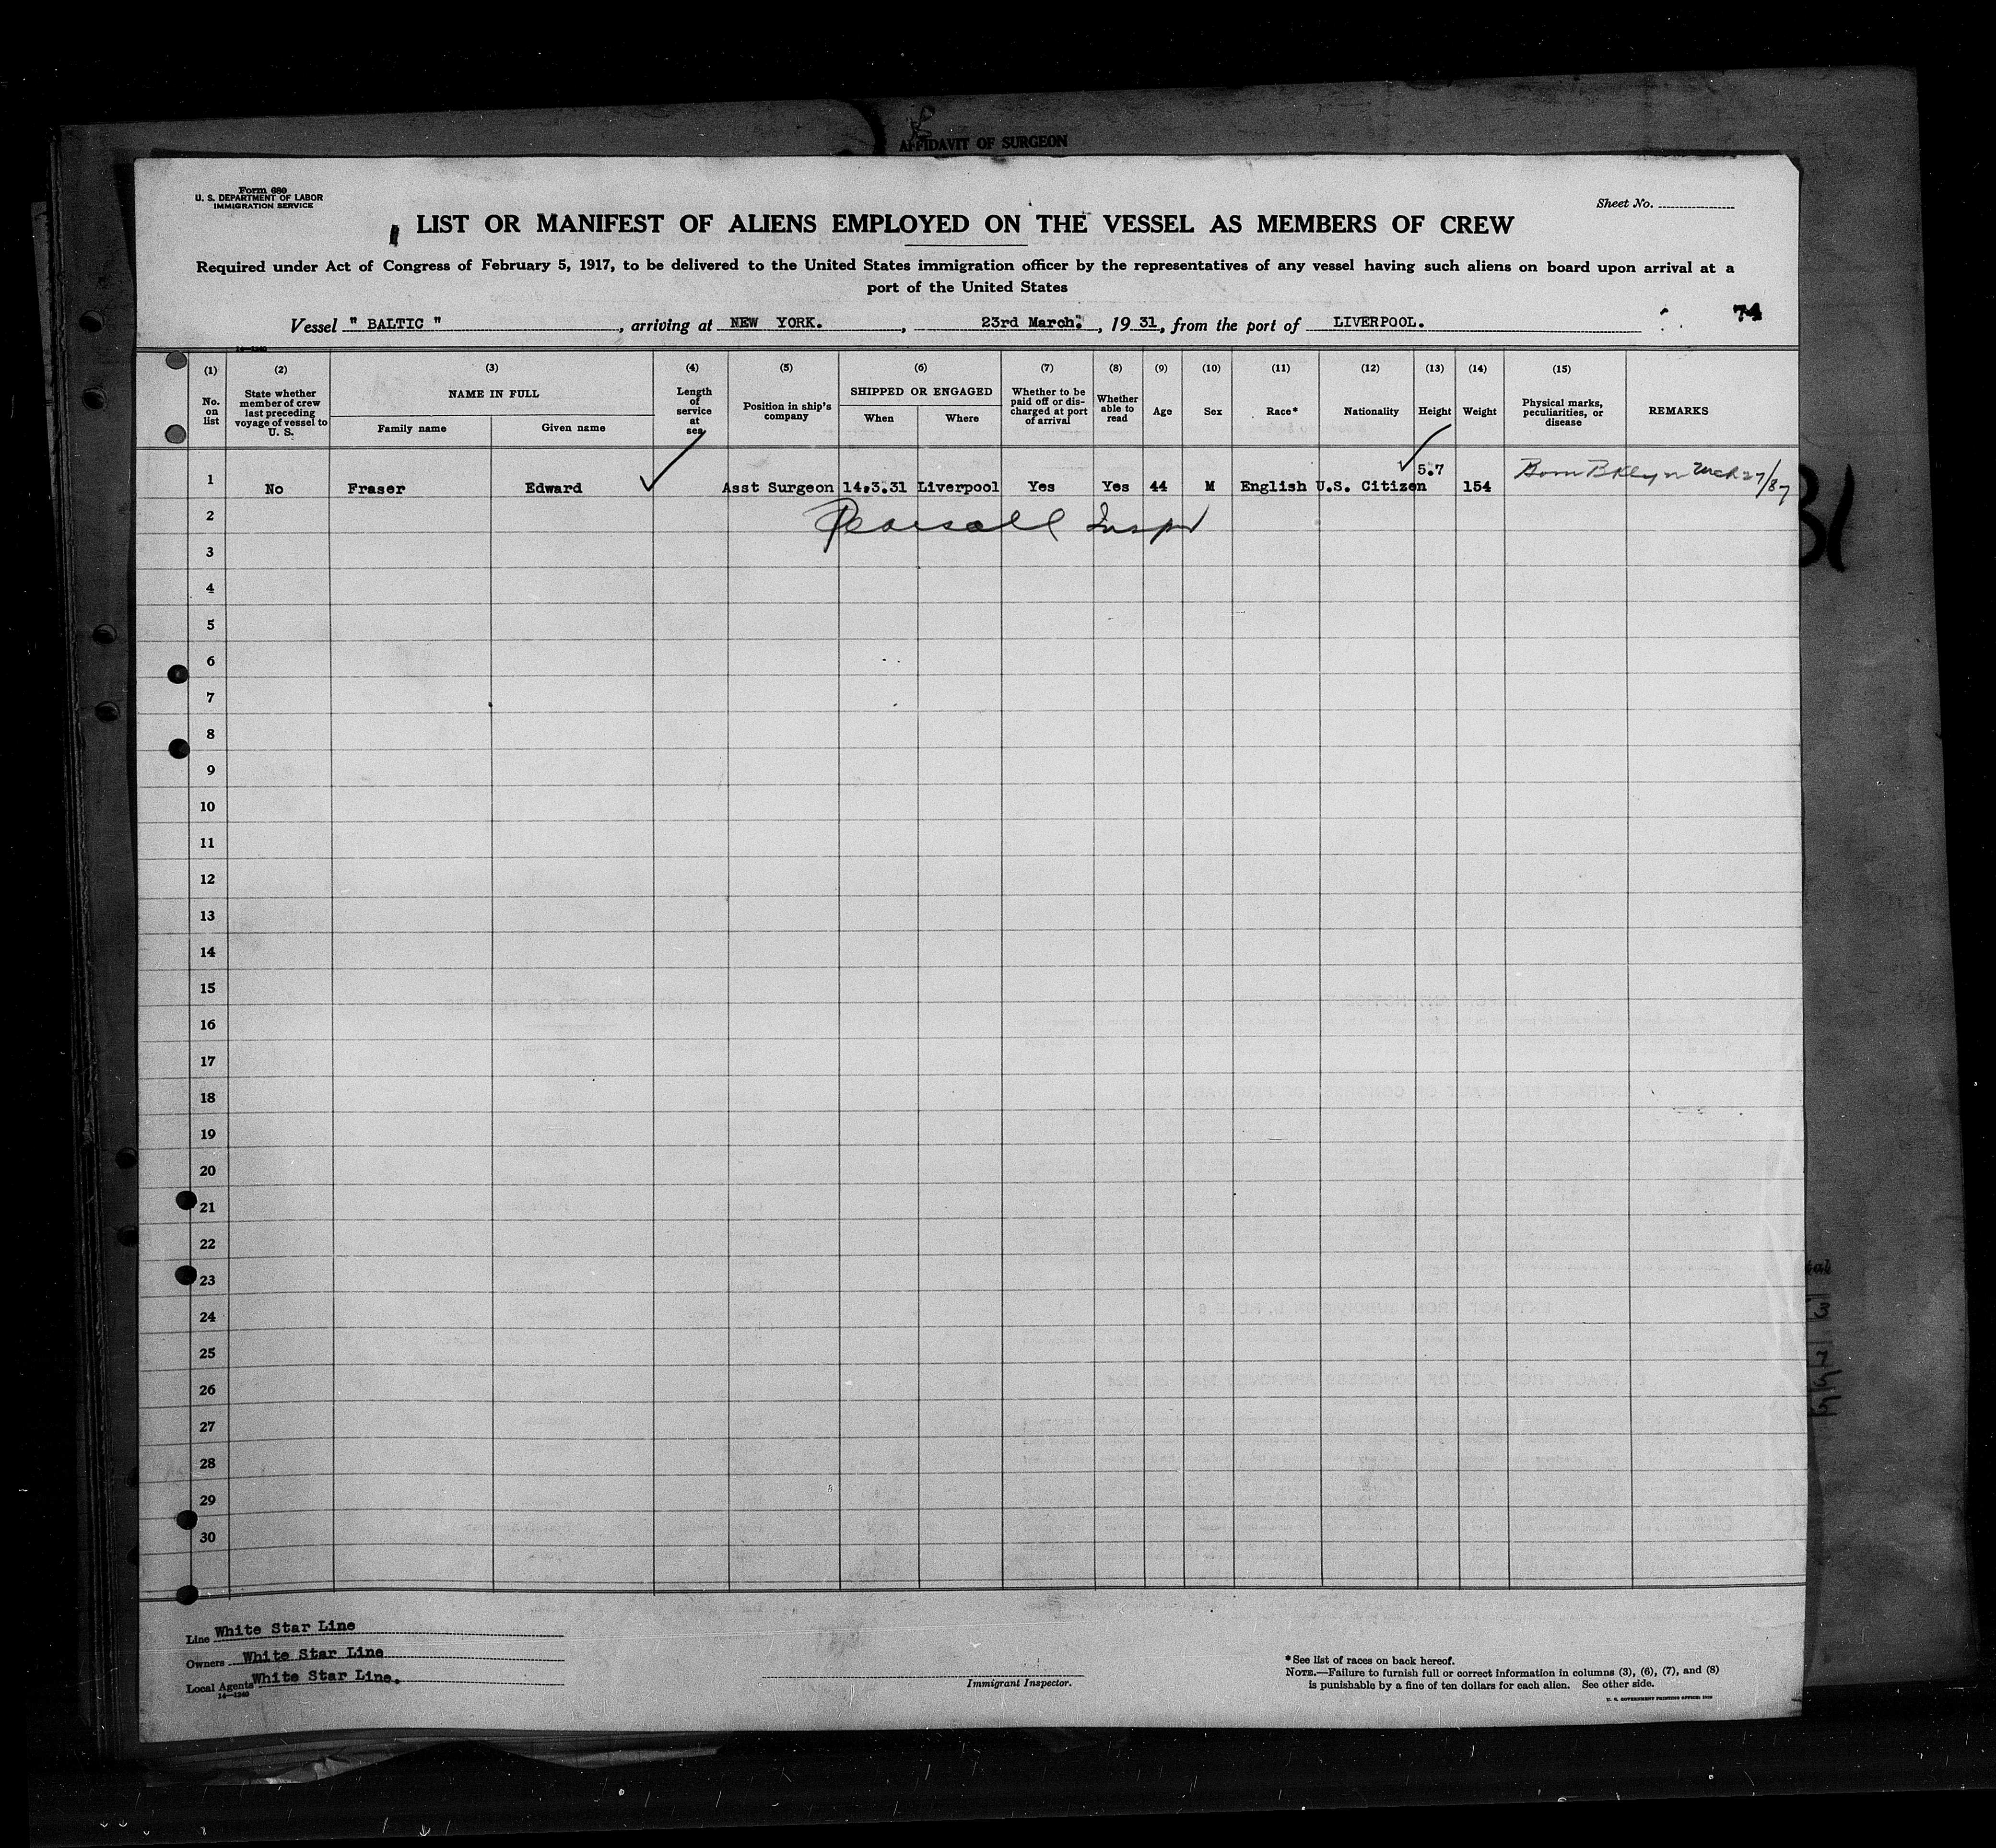 AFFIDAVIT OF SURGEON
Form 680
U. S. DEPARTMENT OF LABOR
IMMIGRATION SERVICE
Sheet No.
LIST OR MANIFEST OF ALIENS EMPLOYED ON THE VESSEL AS MEMBERS OF CREW
Required under Act of Congress of February 5, 1917, to be delivered to the United States immigration officer by the representatives of any vessel having such aliens on board upon arrival at a
port of the United States
Vessel " BALTIC ", arriving at NEW YORK., 23rd March., 1931, from the port of LIVERPOOL. 74
14—1240
(1) (2) (3) (4) (5) (6) (7) (8) (9) (10) (11) (12) (13) (14) (15)
No. on list
State whether member of crew last preceding voyage of vessel to U. S.
NAME IN FULL
Family name Given name
Length of service at sea
Position in ship's company
SHIPPED OR ENGAGED
When Where
Whether to be paid off or discharged at port of arrival
Whether able to read
Age
Sex
Race*
Nationality
Height
Weight
Physical marks, peculiarities, or disease
REMARKS
1 No Fraser Edward ✓ Asst Surgeon 14.3.31 Liverpool Yes Yes 44 M English U.S. Citizen ✓ 5.7 154 Born Bklyn Mch 27/87
2 Pearsall Inspr
3
4
5
6
7
8
9
10
11
12
13
14
15
16
17
18
19
20
21
22
23
24
25
26
27
28
29
30
31
Line White Star Line
Owners White Star Line
Local Agents White Star Line.
14—1240
Immigrant Inspector.
*See list of races on back hereof.
NOTE.—Failure to furnish full or correct information in columns (3), (6), (7), and (8)
is punishable by a fine of ten dollars for each alien. See other side.